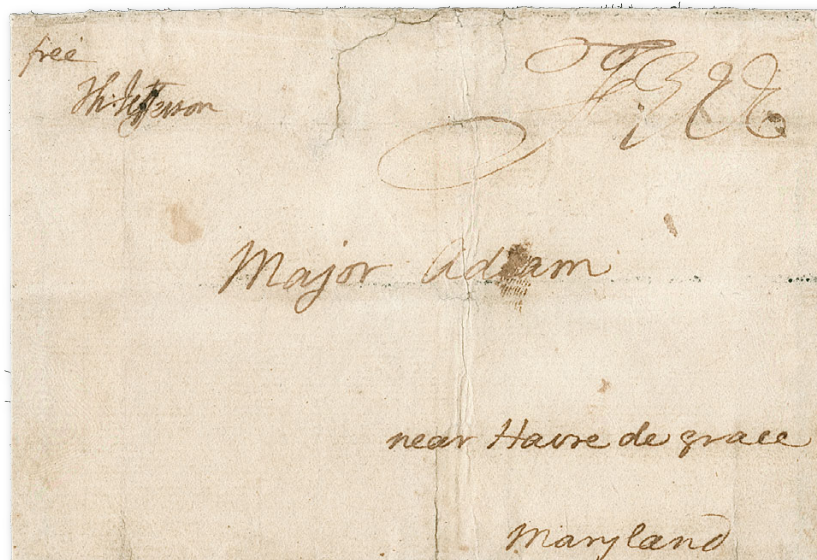 free
Th: Jefferson
FREE
Major Adlam
near Havre de grace
Maryland